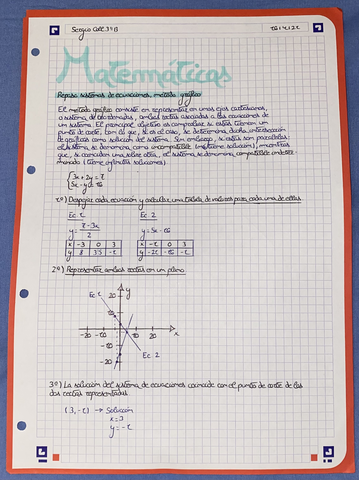 Sergio Cole 3ºB
Matemáticas
Repaso sistemas de ecuaciones, método gráfico
El método gráfico consiste en representar en unos ejes cartesianos,
o sistema de coordenadas, ambas rectas asociadas a las ecuaciones de
un sistema. El principal objetivo es comprobar si estas tienen un
punto de corte, con lo que, si es el caso, se determina dicha intersección
la solución del sistema. Sin embargo, si estas son paralelas
el sistema se denomina como incompatible (no tiene solución), mientras
que, si coinciden una sobre otra, el sistema se denomina compatible
(tiene infinitas soluciones).
3x + 2y = 7
1º) Despejar cada ecuación y calcular una tabla de valores para cada una de ellas
Ec 1 Ec 2
y = 7-3x / 2 y = 5x -
x -3 0 3 x 0 3
y 8 3'5
2º) Representar ambas rectas en un plano
y
Ec 1
20
10
-20 -10 10 20 x
-10
-20
Ec 2
3º) La solución del sistema de ecuaciones coincide con el punto de corte de las
dos rectas representadas
→ Solución
x=3